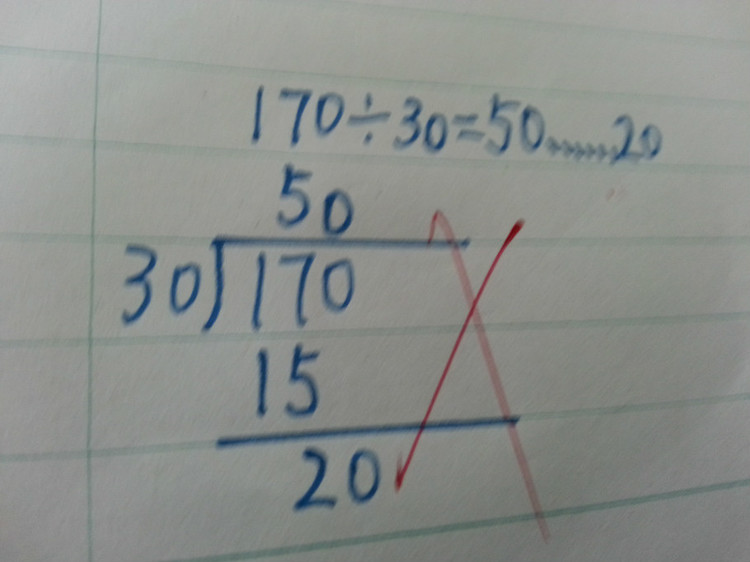 170÷30=50......20
50
30)170
15
20